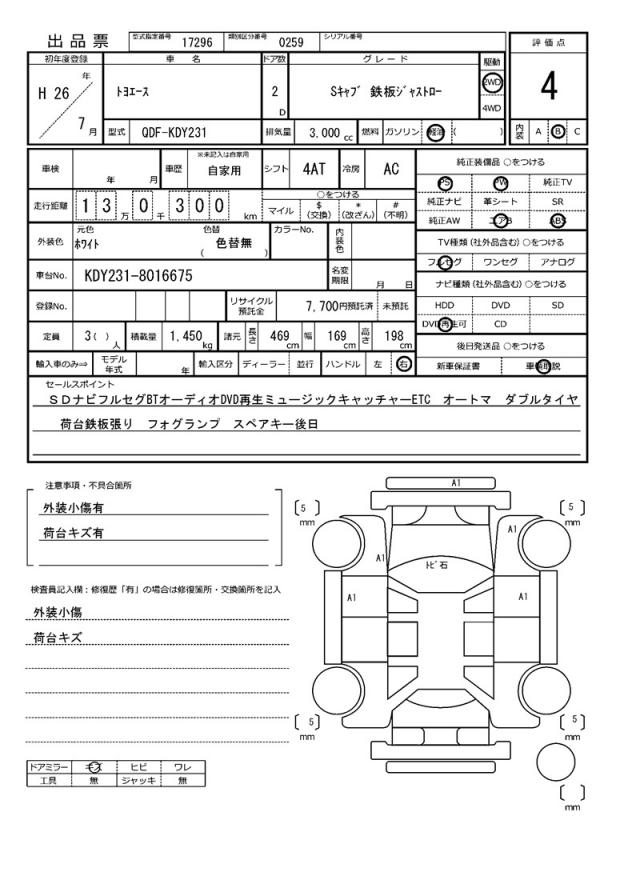 出品票 型式指定番号 17296 類別区分番号 0259 シリアル番号
初年度登録 車名 ドア数 グレード 駆動 評価点
H 26 年 7 月 トヨエース 2 D Sキャブ 鉄板ジャストロー 2WD 4WD 4
型式 QDF-KDY231 排気量 3,000 cc 燃料 ガソリン 軽油 ( ) 内装 A B C
車検 年 月 車歴 ※未記入は自家用 自家用 シフト 4AT 冷房 AC 純正装備品 ○をつける
走行距離 1 3 万 0 千 3 0 0 km ○をつける マイル $(交換) *(改ざん) #(不明)
PS PW 純正TV
純正ナビ 革シート SR
純正AW エアB ABS
外装色 元色 ホワイト 色替 ( 色替無 ) カラーNo. 内装色
TV種類 (社外品含む) ○をつける
フルセグ ワンセグ アナログ
車台No. KDY231-8016675 名変期限 月 日
ナビ種類 (社外品含む) ○をつける
登録No. リサイクル預託金 7,700円預託済 未預託
HDD DVD SD
DVD再生可 CD
定員 3 ( ) 人 積載量 1,450 kg 諸元 長さ 469 cm 幅 169 cm 高さ 198 cm
後日発送品 ○をつける
輸入車のみ⇒ モデル年式 年 輸入区分 ディーラー 並行 ハンドル 左 右
新車保証書 車輌取説
セールスポイント
SDナビフルセグBTオーディオDVD再生ミュージックキャッチャーETC オートマ ダブルタイヤ
荷台鉄板張り フォグランプ スペアキー後日
注意事項・不具合箇所
外装小傷有
荷台キズ有
検査員記入欄：修復歴「有」の場合は修復箇所・交換箇所を記入
外装小傷
荷台キズ
ドアミラー キズ ヒビ ワレ
工具 無 ジャッキ 無
A1
5 mm
5 mm
A1
A1
トビ石
A1
A1
5 mm
5 mm
mm